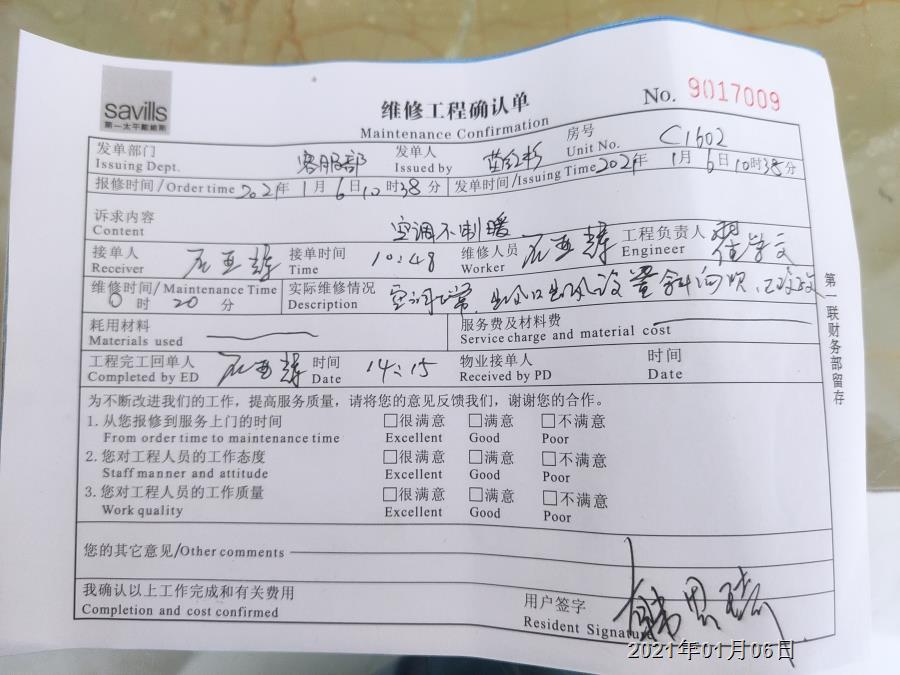 savills
第一太平戴维斯
维修工程确认单
Maintenance Confirmation
No. 9017009
发单部门 客服部 发单人 苗红杉 房号 C1602
Issuing Dept. Issued by Unit No.
报修时间/Order time 2021年1月6日10时38分 发单时间/Issuing Time 2021年1月6日10时38分
诉求内容 空调不制暖
Content
接单人 石亚辉 接单时间 10:48 维修人员 石亚辉 工程负责人
Receiver Time Worker Engineer
维修时间/Maintenance Time 实际维修情况
0时20分 Description 空调正常,出风口出风设置斜向吹,已
耗用材料 服务费及材料费
Materials used Service charge and material cost
工程完工回单人 石亚辉 时间 14:15 物业接单人 时间
Completed by ED Date Received by PD Date
为不断改进我们的工作,提高服务质量,请将您的意见反馈我们,谢谢您的合作。
1. 从您报修到服务上门的时间 □很满意 □满意 □不满意
From order time to maintenance time Excellent Good Poor
2. 您对工程人员的工作态度 □很满意 □满意 □不满意
Staff manner and attitude Excellent Good Poor
3. 您对工程人员的工作质量 □很满意 □满意 □不满意
Work quality Excellent Good Poor
您的其它意见/Other comments
我确认以上工作完成和有关费用
Completion and cost confirmed
用户签字
Resident Signature
第一联财务部留存
2021年01月06日